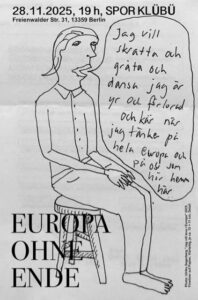 28.11.2025, 19 h, SPOR KLÜBÜ
Freienwalder Str. 31, 13359 Berlin
Jag vill
skratta och
gråta och
dansa jag är
yr och förlorad
och kär när
jag tänker på
hela Europa och
på oss som
hör hemma
här
EUROPA
OHNE
ENDE